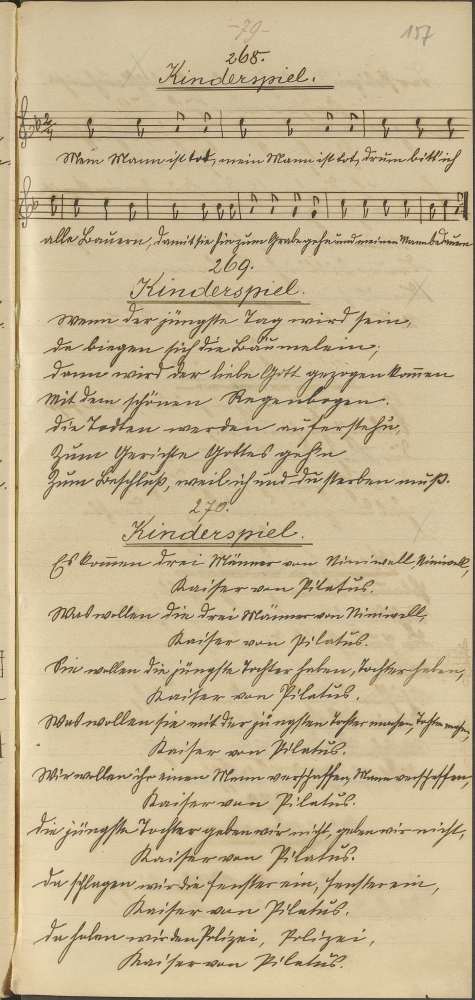 -79-
157
268.
Kinderspiel.
Mein Mann ist tot, mein Mann ist tot, drum bitt' ich
alle Bauern, damit sie hin zum Grabe gehn und meinen Mann bedauern
269.
Kinderspiel.
Wenn der jüngste Tag wird sein,
da biegen sich die Bäumelein,
dann wird der liebe Gott gezogen kom̄en
Mit dem schönen Regenbogen.
Die Todten werden auferstehn,
Zum Gerichte Gottes gehn
Zum Beschluß, weil ich und du sterben muß.
270.
Kinderspiel.
Es kom̄en drei Männer von Niniwell, Niniwell,
Kaiser von Pilatus.
Was wollen die drei Männer von Niniwell,
Kaiser von Pilatus.
Sie wollen die jüngste Tochter haben, Tochter haben,
Kaiser von Pilatus.
Was wollen sie mit der jüngsten Tochter machen, Tochter machen,
Kaiser von Pilatus.
Wir wollen ihr einen Mann verschaffen, Mann verschaffen,
Kaiser von Pilatus.
Die jüngste Tochter geben wir nicht, geben wir nicht,
Kaiser von Pilatus.
Da schlagen wir die Fenster ein, Fenster ein,
Kaiser von Pilatus.
Da holen wir den Polizei, Polizei,
Kaiser von Pilatus.